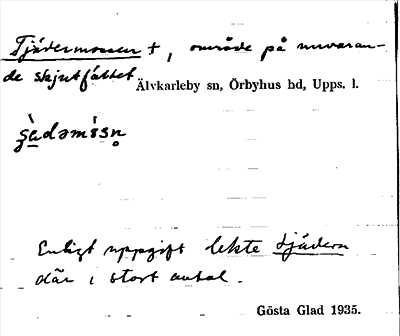 Tjädermossen †, område på nuvaran-
de skjutfältet
Älvkarleby sn, Örbyhus hd, Upps. l.
Enligt uppgift lekte tjädern
där i stort antal.
Gösta Glad 1935.